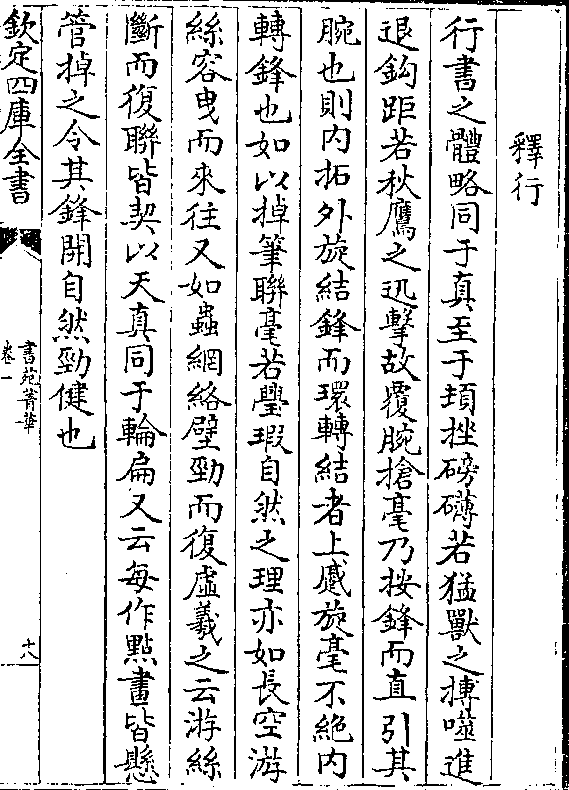 釋行
行書之體略同于真至于頓挫磅礴若猛獸之摶噬進
退鈎距若秋鷹之迅擊故覆腕搶毫乃按鋒而直引其
腕也則内拓外旋結鋒而環轉結者上蹙旋毫不絶内
轉鋒也如以掉筆聯毫若瑿瑕自然之理亦如長空游
絲容曳而來往又如蟲網絡壁勁而復虚羲之云游絲
斷而復聯皆契以天真同于輪扁又云每作點畫皆懸
管掉之令其鋒開自然勁健也
欽定四庫全書
書苑菁華
卷一
十八